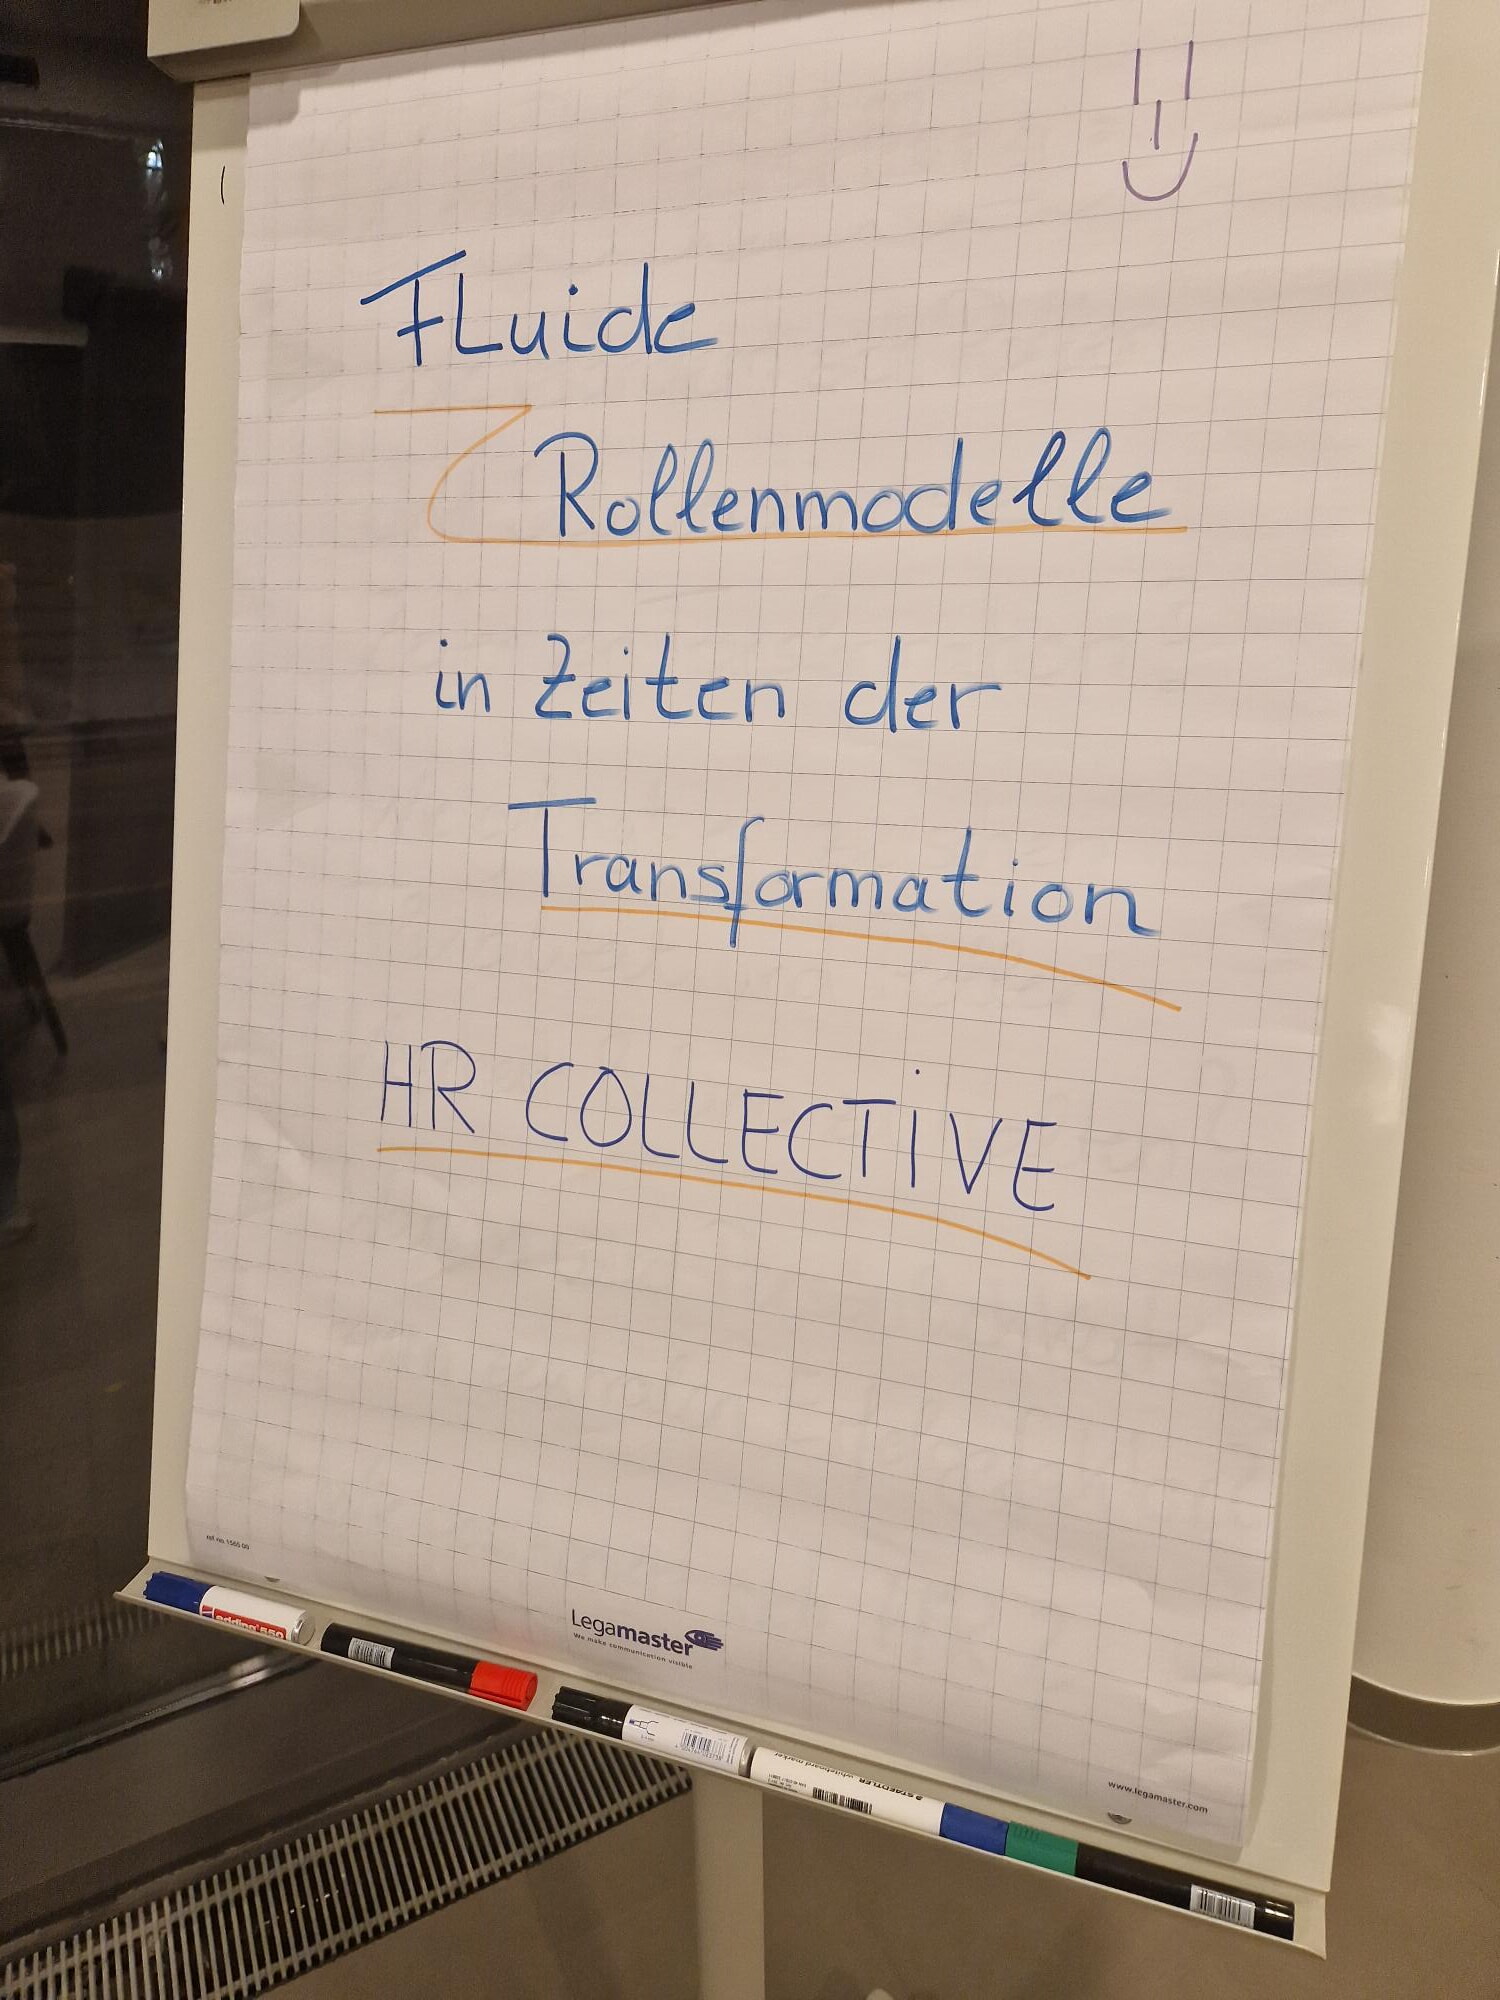 FLuide
Rollenmodelle
in Zeiten der
Transformation
HR COLLECTIVE
ref.no. 1565 00
Legamaster
We make communication visible
www.legamaster.com
edding 550
STAEDTLER
whiteboard marker